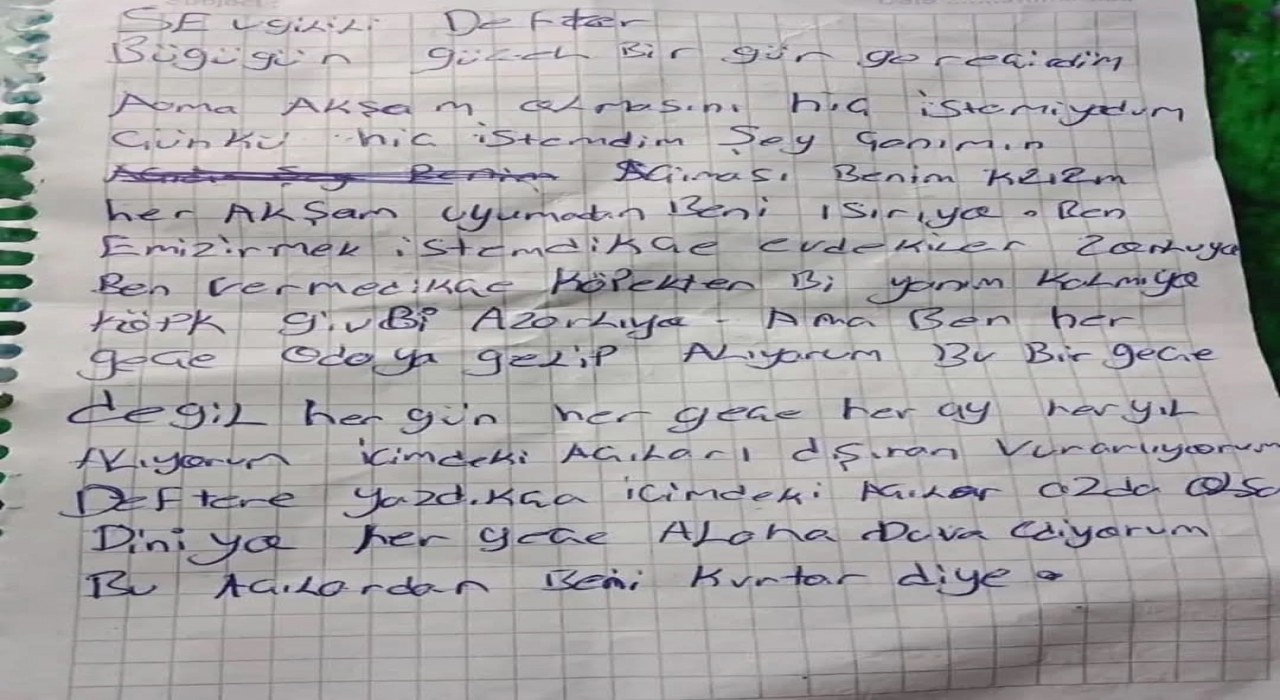 SEvgilili Defter
Bügügün güzel Bir gün goreciedim
Aoma AKşam olmasını hiç istemiyodum
Günkü hic istemdim Şey Ganımın
Acıması Benim Kızızm
her AKŞam uyumadan Beni ısırıya. Ben
Emizirmek istemdikçe evdekiler Zorluya
Ben vermedikçe Köpekten Bi yanım Kalmıya
Köpk givBi Azorlıya. Ama Ben her
gece Odaya gelip Alıyorum Bu Bir gece
degil her gün her gece her ay her yıl
Alıyorum içimdeki Acıları dşıran Vurarlıyorum
Deftere yazdıkça içimdeki Acılar azda olsa
Diniya her gece Alaha Duva Ediyorum
Bu Acılardan Beni Kurtar diye.